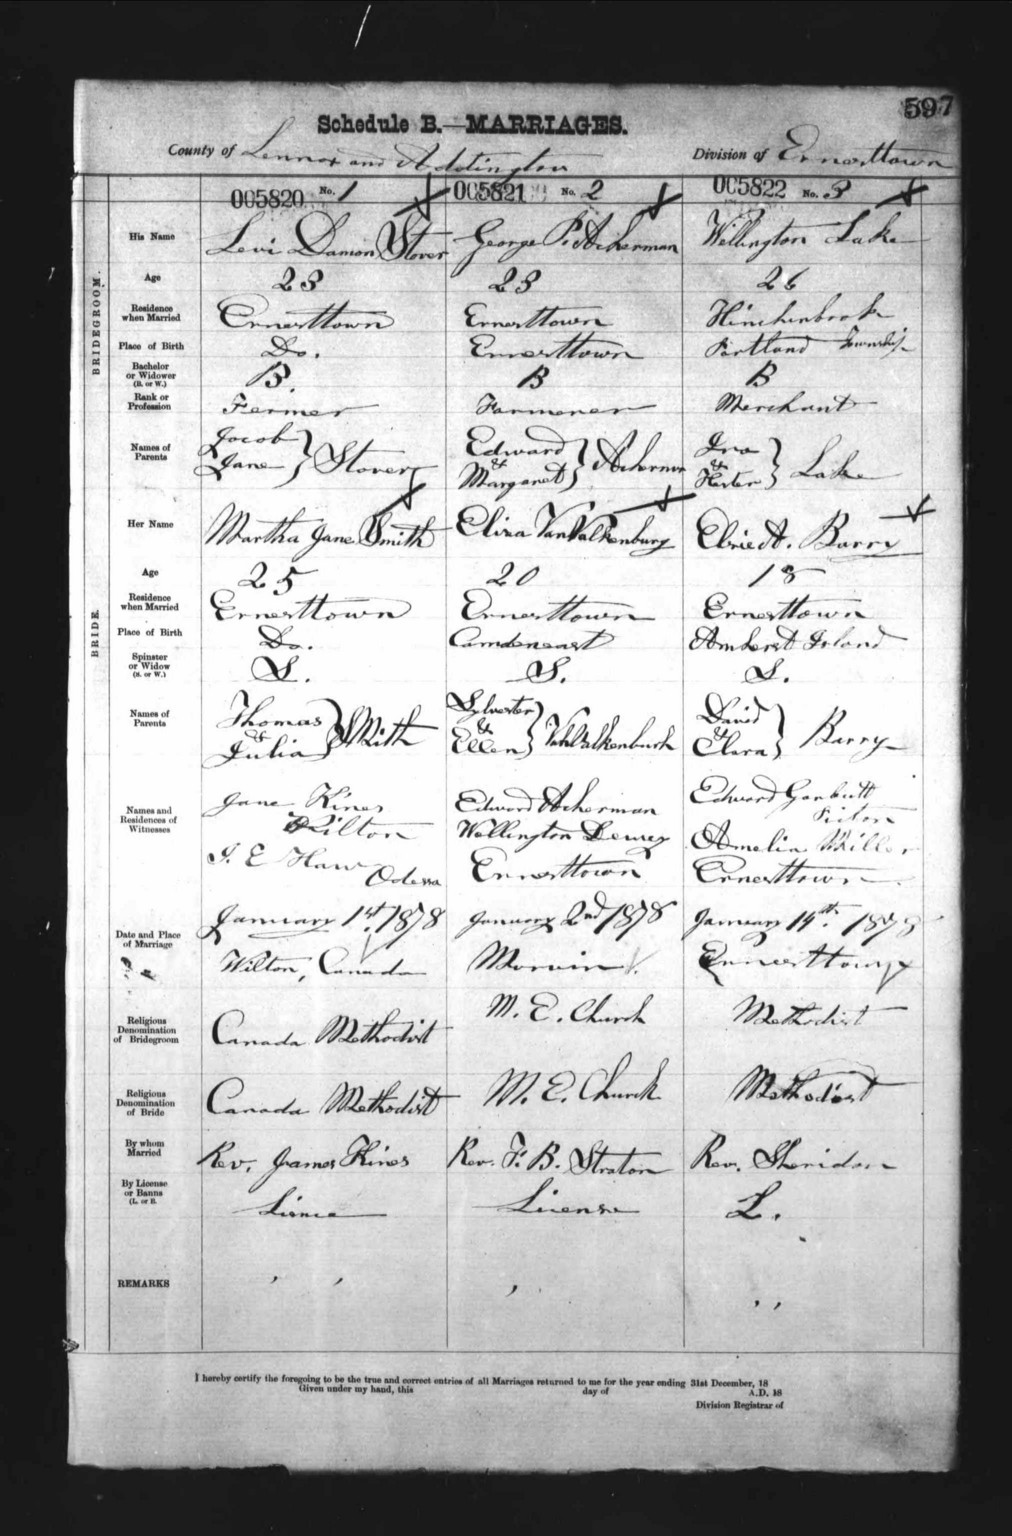 597
Schedule B.—MARRIAGES.
County of Lennox and Addington Division of Ernesttown
005820 No. 1 005821 No. 2 005822 No. 3
BRIDEGROOM.
His Name Levi Damon Stover George P. Ackerman Wellington Lake
Age 23 23 26
Residence when Married Ernesttown Ernesttown Hinchinbrook
Place of Birth Do. Ernesttown Portland Township
Bachelor or Widower (B. or W.) B. B B
Rank or Profession Fermer Farmener Merchant
Names of Parents Jacob Jane } Stover Edward & Margaret } Ackerman Ira & Hester } Lake
BRIDE.
Her Name Martha Jane Smith Eliza VanValkenburg A. Barry
Age 25 20 18
Residence when Married Ernesttown Ernesttown Ernesttown
Place of Birth Do. Camdeneast Amherst Island
Spinster or Widow (S. or W.) S. S. S.
Names of Parents Thomas & Julia } Smith Sylvester & Ellen } VanValkenburh David & Clara } Barry
Names and Residences of Witnesses
Jane Kines Edward Ackerman Edward
Wilton Wellington Dewey Amelia Miller
Odessa Ernesttown Ernesttown
Date and Place of Marriage
January 1st 1878 January 2nd 1878 January 14th. 1878
Wilton, Canada Morvin Ernesttown
Religious Denomination of Bridegroom Canada Methodist M. E. Church Methodist
Religious Denomination of Bride Canada Methodist M. E. Church Methodist
By whom Married Rev. James Kines Rev. F. B. Straton Rev. Sheridan
By License or Banns (L. or B. Lisnce License L.
REMARKS
I hereby certify the foregoing to be the true and correct entries of all Marriages returned to me for the year ending 31st December, 18
Given under my hand, this day of A.D. 18
Division Registrar of